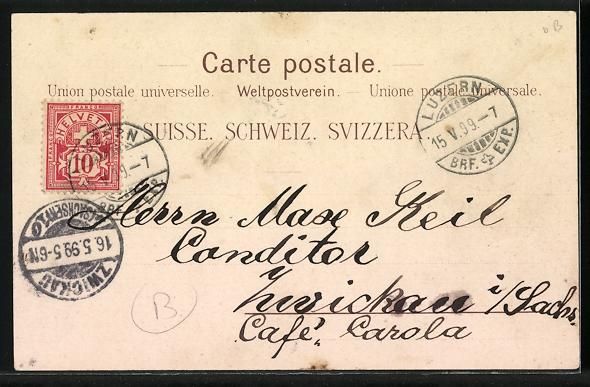 B
Carte postale.
Union postale universelle. Weltpostverein. Unione postale universale.
SUISSE. SCHWEIZ. SVIZZERA.
FRANCO
HELVETIA
10
LUZERN
15.V.99.-7
BRF. EXP.
LUZERN
9.-7
EXP.
ZWICKAU
16.5.99.5-6N
Herrn Max Keil
Conditor
Zwickau i/Sachs.
Café, Carola
B